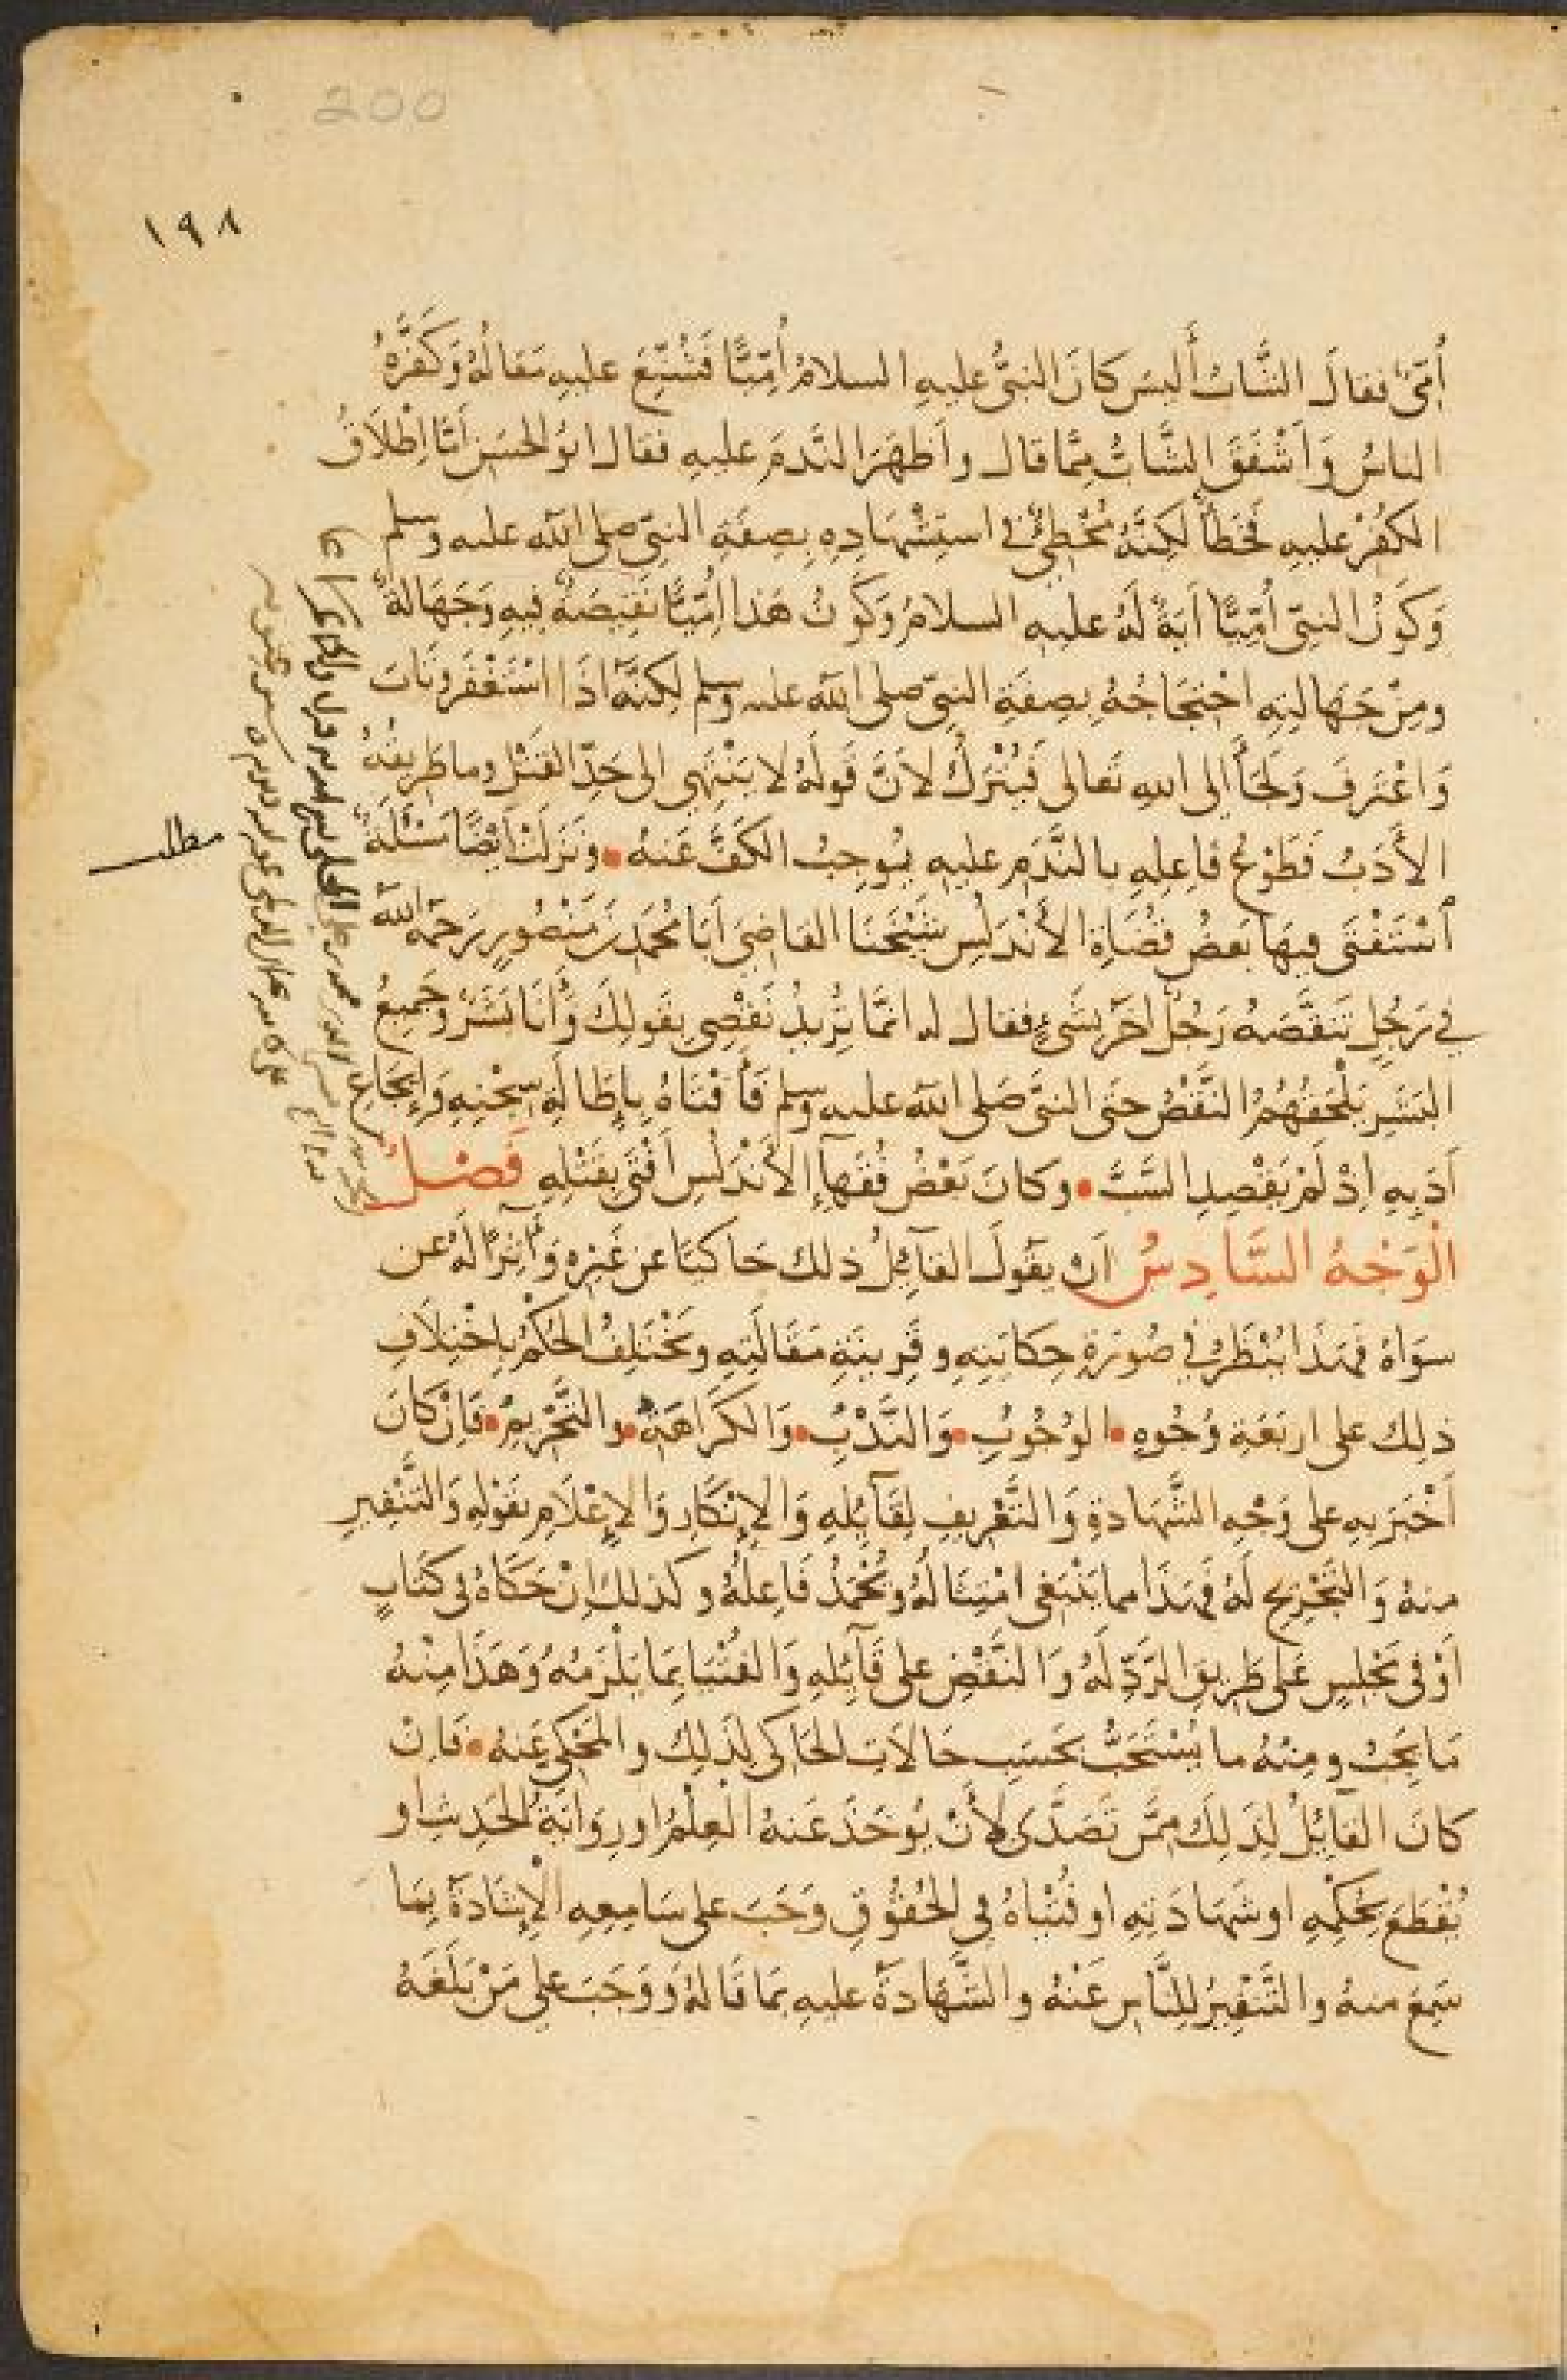 200
١٩٨
أُمِّيٌّ فقالَ الشَّابُّ أَليسَ كَانَ النبىُّ عليهِ السلامُ أُمِّيًّا فَشُنِّعَ عليهِ مَقالُهُ وَكَفَّرَهُ
الناسُ وَاَشْفَقَ الشَّابُّ مِمَّا قال واَظهَرَ النَّدمَ عليهِ فقال ابوُ الحسَنِ اَمَّا اِطْلَاقُ
الكُفْرِ عليهِ فَخَطَأٌ لَكِنَّهُ مُخْطِئٌ فى استِشْهَادِهِ بِصِفَةِ النبىّ صلى الله عليه وسلم
وَكَوْنُ النبىّ اُمِّيًّا آيَةٌ لَهُ عليهِ السلامُ وَكَوْنُ هَذا اُمّيًّا نَقِيصَةٌ فِيهِ وَجَهَالةٌ
ومِنْ جَهَالتِهِ احْتِجَاجُهُ بِصِفَةِ النبىّ صلى الله عليه وسلم لكِنَّهُ اذَا اسْتَغْفَرَ وَتَابَ
وَاعْتَرَفَ وَلَجَأَ اِلى اللهِ تَعالى فَيُتْرَكُ لاَنَّ قَولَهُ لا يَنْتَهِى الى حَدِّ القَتْلِ وما طَرِيقهُ
الأَدَبُ فَطَوْعُ فاعِلِهِ بالنَّدَمِ عليهِ يُوجِبُ الكَفَّ عَنهُ • ونَزَلَتْ اَيْضًا مَسْئَلَةٌ
اُسْتَفْتَى فِيهَا بَعضُ قُضَاةِ الأَنْدَلُسِ شَيْخَنَا القاضِىَ اَبَا مُحَمَّدِ بنَ مَنْصُورٍ رَحِمَهُ اللّه
فى رَجُلٍ تَنَقَّصَهُ رَجُلٌ اٰخَرُ بِشَىءٍ فقال له انمَّا تُرِيدُ نَقْصِى بِقَولِكَ وَأَنَا بَشَرٌ وَجَمِيعُ
البَشَرِ يَلْحَقُهُمُ النَّقْصُ حتى النبىَّ صَلى اللّه عليه وسلم فَأَفْتَاهُ بِاِطَالَةِ سِجْنِهِ وَاِيجَاعِ
اَدَبِهِ اِذْ لَمْ يَقْصِدِ السَّبَّ • وكانَ بَعْضُ فُقَهآءِ الأَنْدَلُسِ اَفْتَى بِقَتْلِهِ فَصْلٌ
الْوَجْهُ السَّادِسُ اَنْ يقولَ القآئِلُ ذلك حَاكيًا عن غَيْرِهِ وَاٰثِرًا لَهُ عن
سِوَاهُ فَهَذَا يُنْظَرُ فى صُورَةِ حِكَايَتِهِ وقَرِينَةِ مَقَالَتِهِ ويَخْتَلِفُ الحُكْمُ بِاخْتِلَافِ
ذلِك على اربَعَةِ وُجُوهٍ • الوُجُوبِ • وَالنَّدْبِ • وَالكَرَاهَةِ • والتَّحْرِيمِ • فَاِنْ كَانَ
اَخْبَرَ بِهِ على وَجْهِ الشَّهَادةِ وَالتَّعْرِيفِ لِقَآئِلِهِ وَالاِنْكَارِ وَالاِعْلَامِ بقَوْلِهِ وَالتَّنْفِيرِ
مِنهُ وَالتَّجْرِيحِ لَهُ فَهَذَا مما يَنْبَغِى امْتِثَالُهُ ويُحْمَدُ فَاعِلُهُ وكذلك اِنْ حَكَاهُ فى كتَابٍ
اَوْ فى مَجْلِسٍ عَلى طَرِيقِ الرَّدِّ لَهُ وَالنَّقْضِ على قَآئِلِهِ وَالفُتْيَا بِمَا يَلْزَمُهُ وَهَذَا مِنْهُ
مَا يَجِبُ ومِنْهُ ما يُسْتَحَبُّ بحَسَبِ حَالاَتِ الحَاكى لِذَلِكَ والمَحْكِىِّ عَنهُ • فَاِنْ
كانَ القآئِلُ لِذَلِكَ مِمَّنْ تَصَدَّى لأَنْ يُوخَذَ عَنهُ الْعِلْمُ او رِوَايَةُ الحَدِيثِ او
يُقْطَعَ بِحُكْمِهِ او شَهَادَتِهِ او فُتْيَاهُ فى الحُقُوقِ وَجَبَ على سَامِعِهِ الْاِشَادَةُ بِمَا
سَمِعَ منهُ والتَّنْفِيرُ لِلنَّاسِ عَنْهُ والشَّهَادَةُ عليهِ بمَا قَالهُ وَوَجَبَ على مَنْ بَلَغَهُ
مطلب